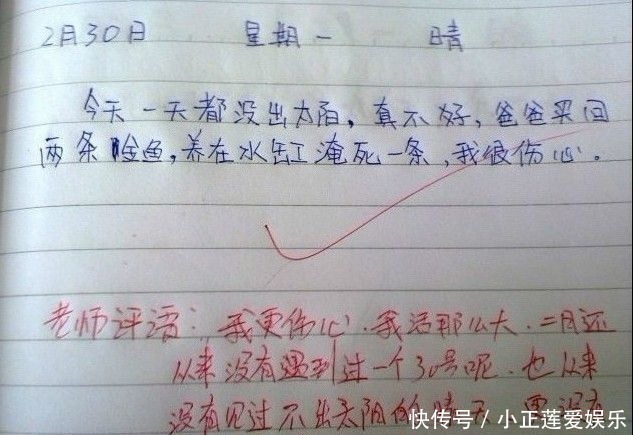 2月30日 星期一 晴
今天一天都没出太阳，真不好，爸爸买回
两条金鱼，养在水缸淹死一条，我很伤心。
老师评语：我更伤心.我活那么大.二月还
从来没有遇到过一个30号呢.也从来
没有见过不出太阳的晴天.更没有
快传号／小正莲爱娱乐